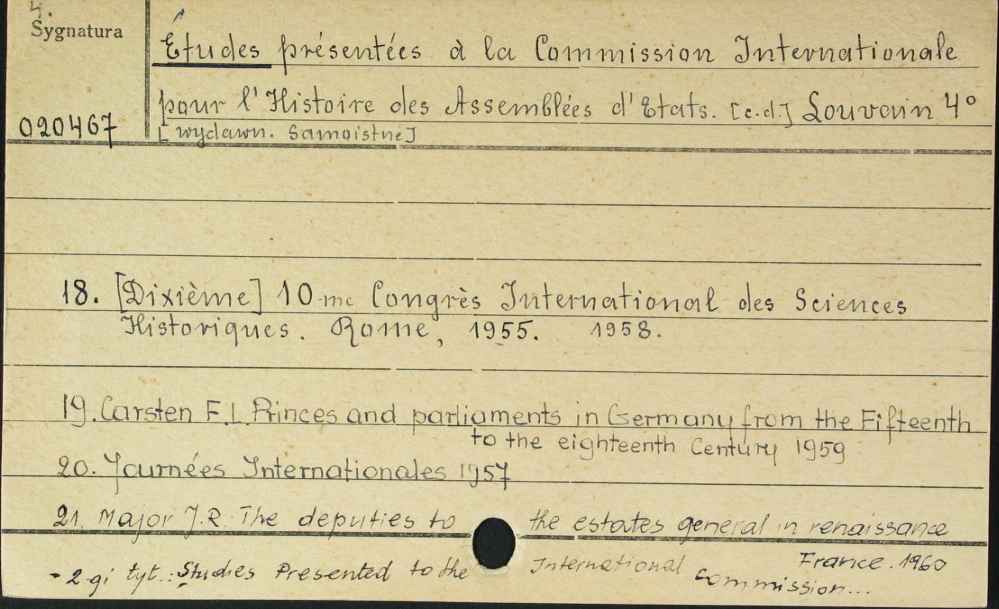 4.
Sygnatura
Études présentées à la Commission Internationale
pour l'Histoire des Assemblées d'Etats. [c.d.] Louvain 4°
020467
[wydawn. Samoistne]
18. [Dixième] 10-me Congrès International des Sciences
Historiques. Rome, 1955. 1958.
19. Carsten F.L. Princes and parliaments in Germany from the Fifteenth
to the eighteenth Century 1959
20. Journées Internationales 1957
21. Major J.R. The deputies to the estates general in renaissance
France. 1960
- 2-gi tyt.: Studies Presented to the International Commission...